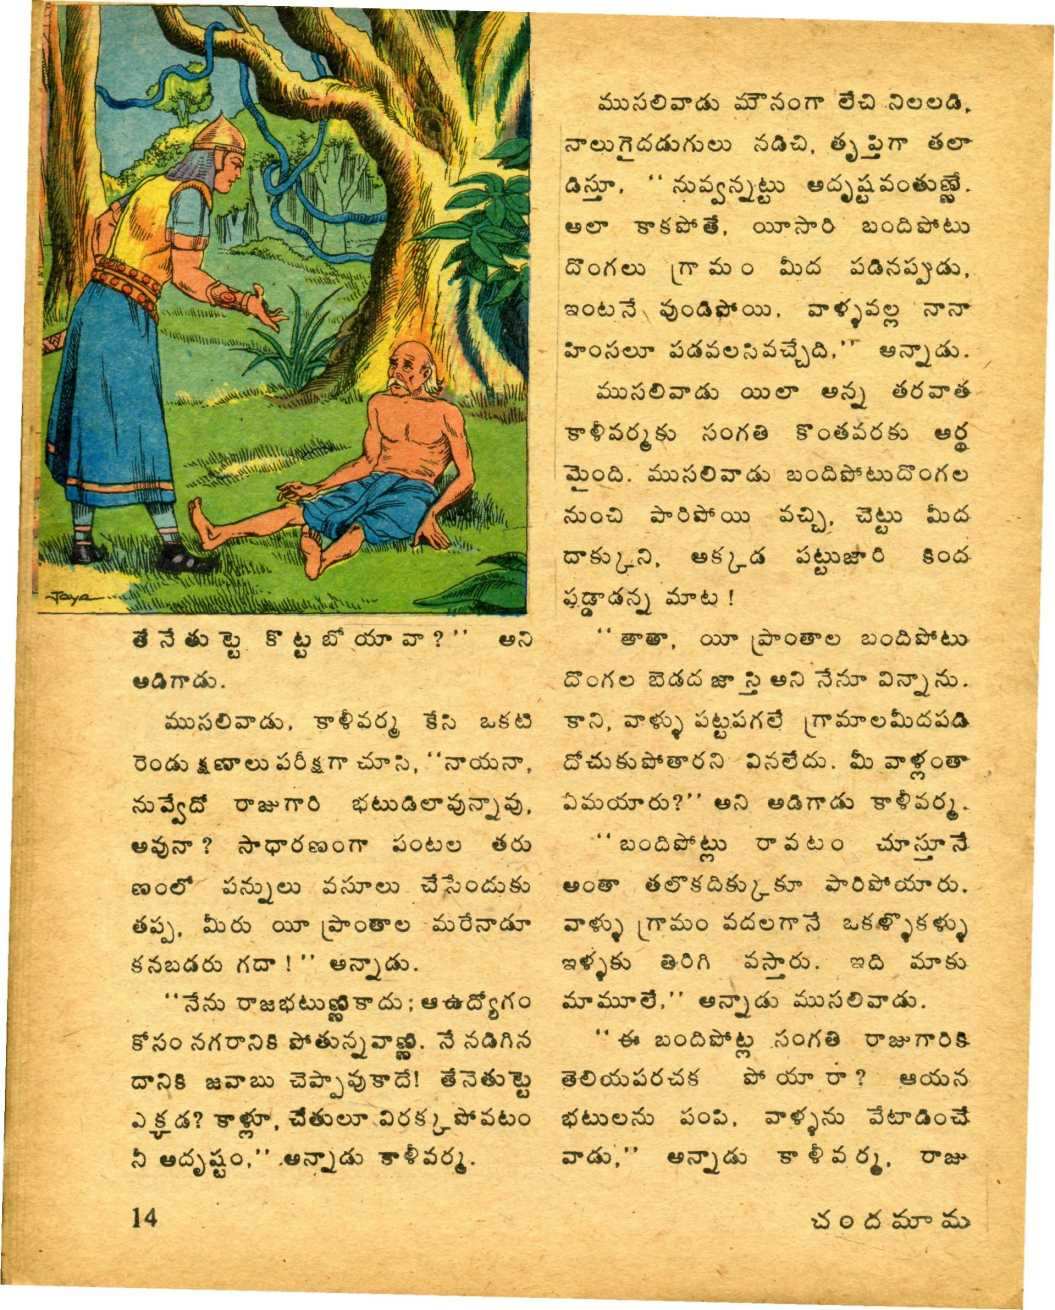 Jaya
తేనేతుట్టె కొట్టబోయావా?'' అని
అడిగాడు.
ముసలివాడు, కాళీవర్మ కేసి ఒకటి
రెండు క్షణాలు పరీక్షగా చూసి, ''నాయనా,
నువ్వేదో రాజుగారి భటుడిలావున్నావు,
అవునా? సాధారణంగా పంటల తరు
ణంలో పన్నులు వసూలు చేసేందుకు
తప్ప, మీరు యీ ప్రాంతాల మరేనాడూ
కనబడరు గదా!'' అన్నాడు.
''నేను రాజభటుణ్ణికాదు; ఆ ఉద్యోగం
కోసం నగరానికి పోతున్నవాణ్ణి. నే నడిగిన
దానికి జవాబు చెప్పావుకాదే! తేనెతుట్టె
ఎక్కడ? కాళ్లూ, చేతులూ విరక్క పోవటం
నీ అదృష్టం,'' అన్నాడు కాళీవర్మ.
ముసలివాడు మౌనంగా లేచి నిలలడి,
నాలుగైదడుగులు నడిచి, తృప్తిగా తలా
డిస్తూ, ''నువ్వన్నట్టు అదృష్టవంతుణ్ణే.
అలా కాకపోతే, యీసారి బందిపోటు
దొంగలు గ్రామం మీద పడినప్పుడు,
ఇంటనే వుండిపోయి, వాళ్ళవల్ల నానా
హింసలూ పడవలసివచ్చేది,'' అన్నాడు.
ముసలివాడు యిలా అన్న తరవాత
కాళీవర్మకు సంగతి కొంతవరకు అర్థ
మైంది. ముసలివాడు బందిపోటుదొంగల
నుంచి పారిపోయి వచ్చి, చెట్టు మీద
దాక్కుని, అక్కడ పట్టుజారి కింద
పడ్డాడన్న మాట!
''తాతా, యీ ప్రాంతాల బందిపోటు
దొంగల బెడద జాస్తి అని నేనూ విన్నాను.
కాని, వాళ్ళు పట్టపగలే గ్రామాలమీదపడి
దోచుకుపోతారని వినలేదు. మీ వాళ్లంతా
ఏమయారు?'' అని అడిగాడు కాళీవర్మ.
''బందిపోట్లు రావటం చూస్తూనే
అంతా తలొకదిక్కుకూ పారిపోయారు.
వాళ్ళు గ్రామం వదలగానే ఒకళ్ళొకళ్ళు
ఇళ్ళకు తిరిగి వస్తారు. ఇది మాకు
మామూలే,'' అన్నాడు ముసలివాడు.
''ఈ బందిపోట్ల సంగతి రాజుగారికి
తెలియపరచక పోయారా? ఆయన
భటులను పంపి, వాళ్ళను వేటాడించే
వాడు,'' అన్నాడు కాళీవర్మ, రాజు
14
చందమామ